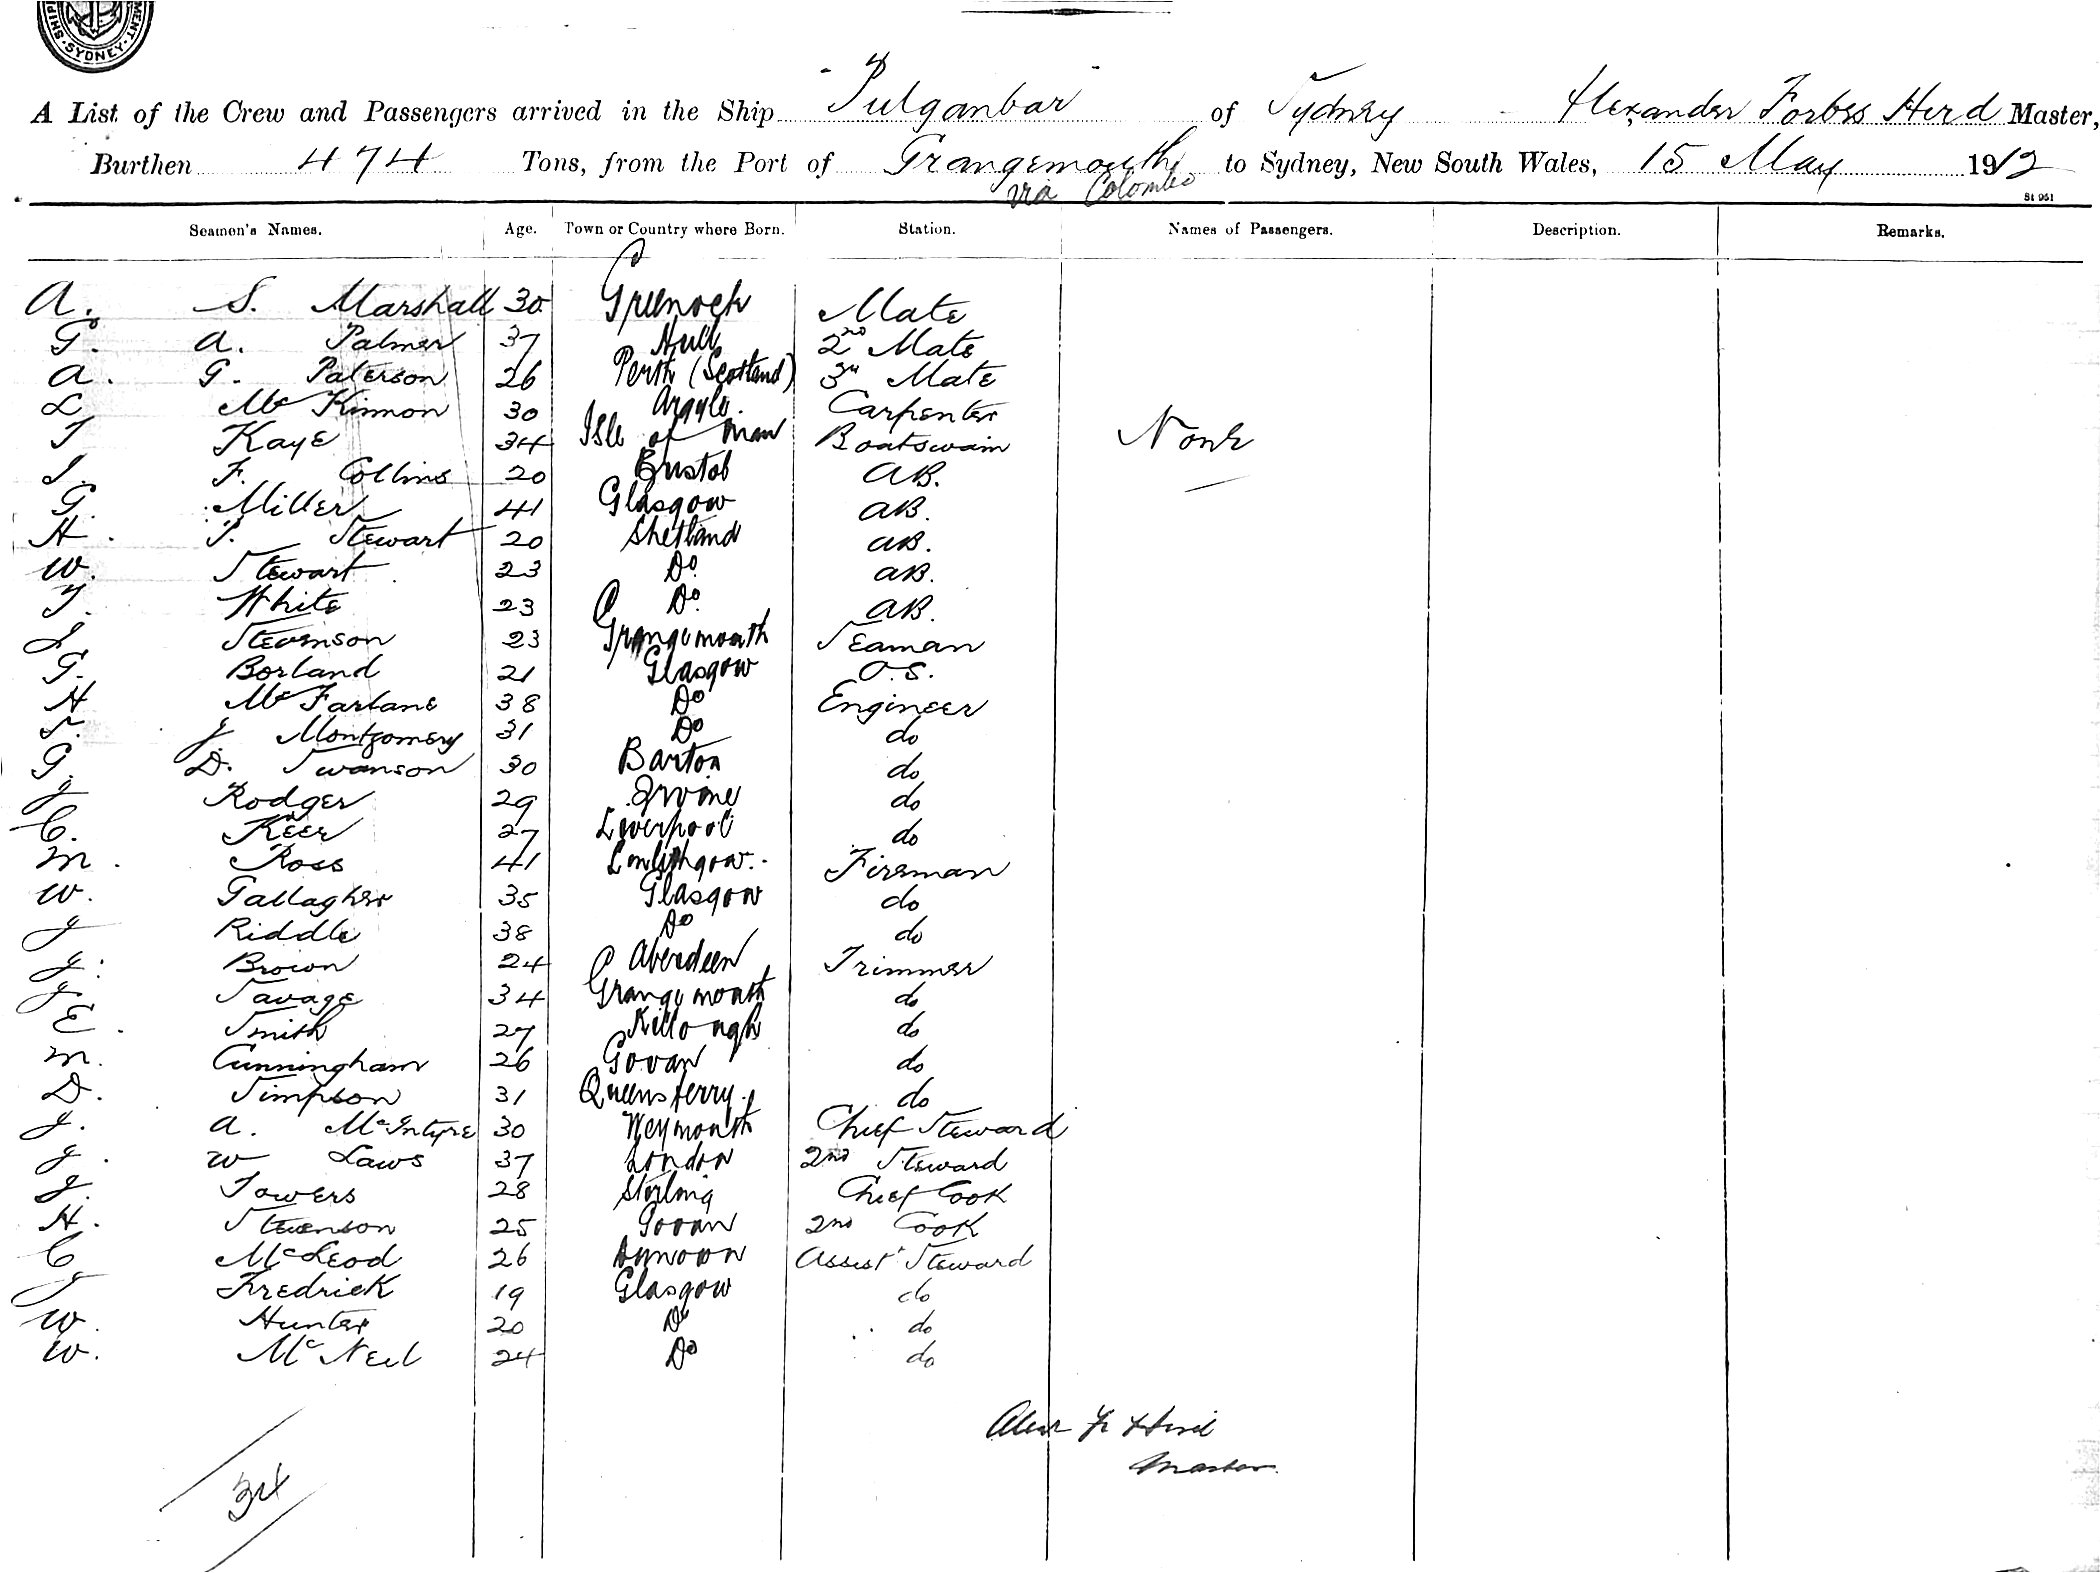 SYDNEY
A List of the Crew and Passengers arrived in the Ship "Pulganbar" of Sydney - Alexander Forbes Herd Master,
Burthen 474 Tons, from the Port of Grangemouth via Colombo to Sydney, New South Wales, 15 May 1912
St 951
Seamen's Names. Age. Town or Country where Born. Station. Names of Passengers. Description. Remarks.
A. S. Marshall 30 Greenock Mate
G. A. Palmer 37 Hull 2nd Mate
A. G. Paterson 26 Perth (Scotland) 3rd Mate
L McKinnon 30 Argyle. Carpenter
T Kaye 34 Isle of Man Boatswain None
J. F. Collins 20 Bristol AB.
G. Miller 41 Glasgow AB.
H. P. Stewart 20 Shetland AB.
W. Stewart 23 Do AB.
T. White 23 Do AB.
Stevenson 23 Grangemouth Seaman
G. Borland 21 Glasgow O.S.
H McFarlane 38 Do Engineer
J Montgomery 31 Do do
G. D. Swanson 30 Barton do
J Rodger 29 Irvine do
C. Keer 27 Liverpool do
M. Ross 41 Linlithgow. Fireman
W. Gallagher 35 Glasgow do
J Riddle 38 Do do
J. Brown 24 Aberdeen Trimmer
J Savage 34 Grangemouth do
E. Smith 27 Killough do
M. Cunningham 26 Govan do
D. Simpson 31 Queensferry. do
J. A. McIntyre 30 Weymouth Chief Steward
J. W Laws 37 London 2nd Steward
J. Towers 28 Stirling Chief Cook
H. Stevenson 25 Govan 2nd Cook
C McLeod 26 Dunoon Assist Steward
J Fredrick 19 Glasgow do
W. Hunter 20 Do do
W. McNeil 24 Do do
Alexr F Herd
Master.
34